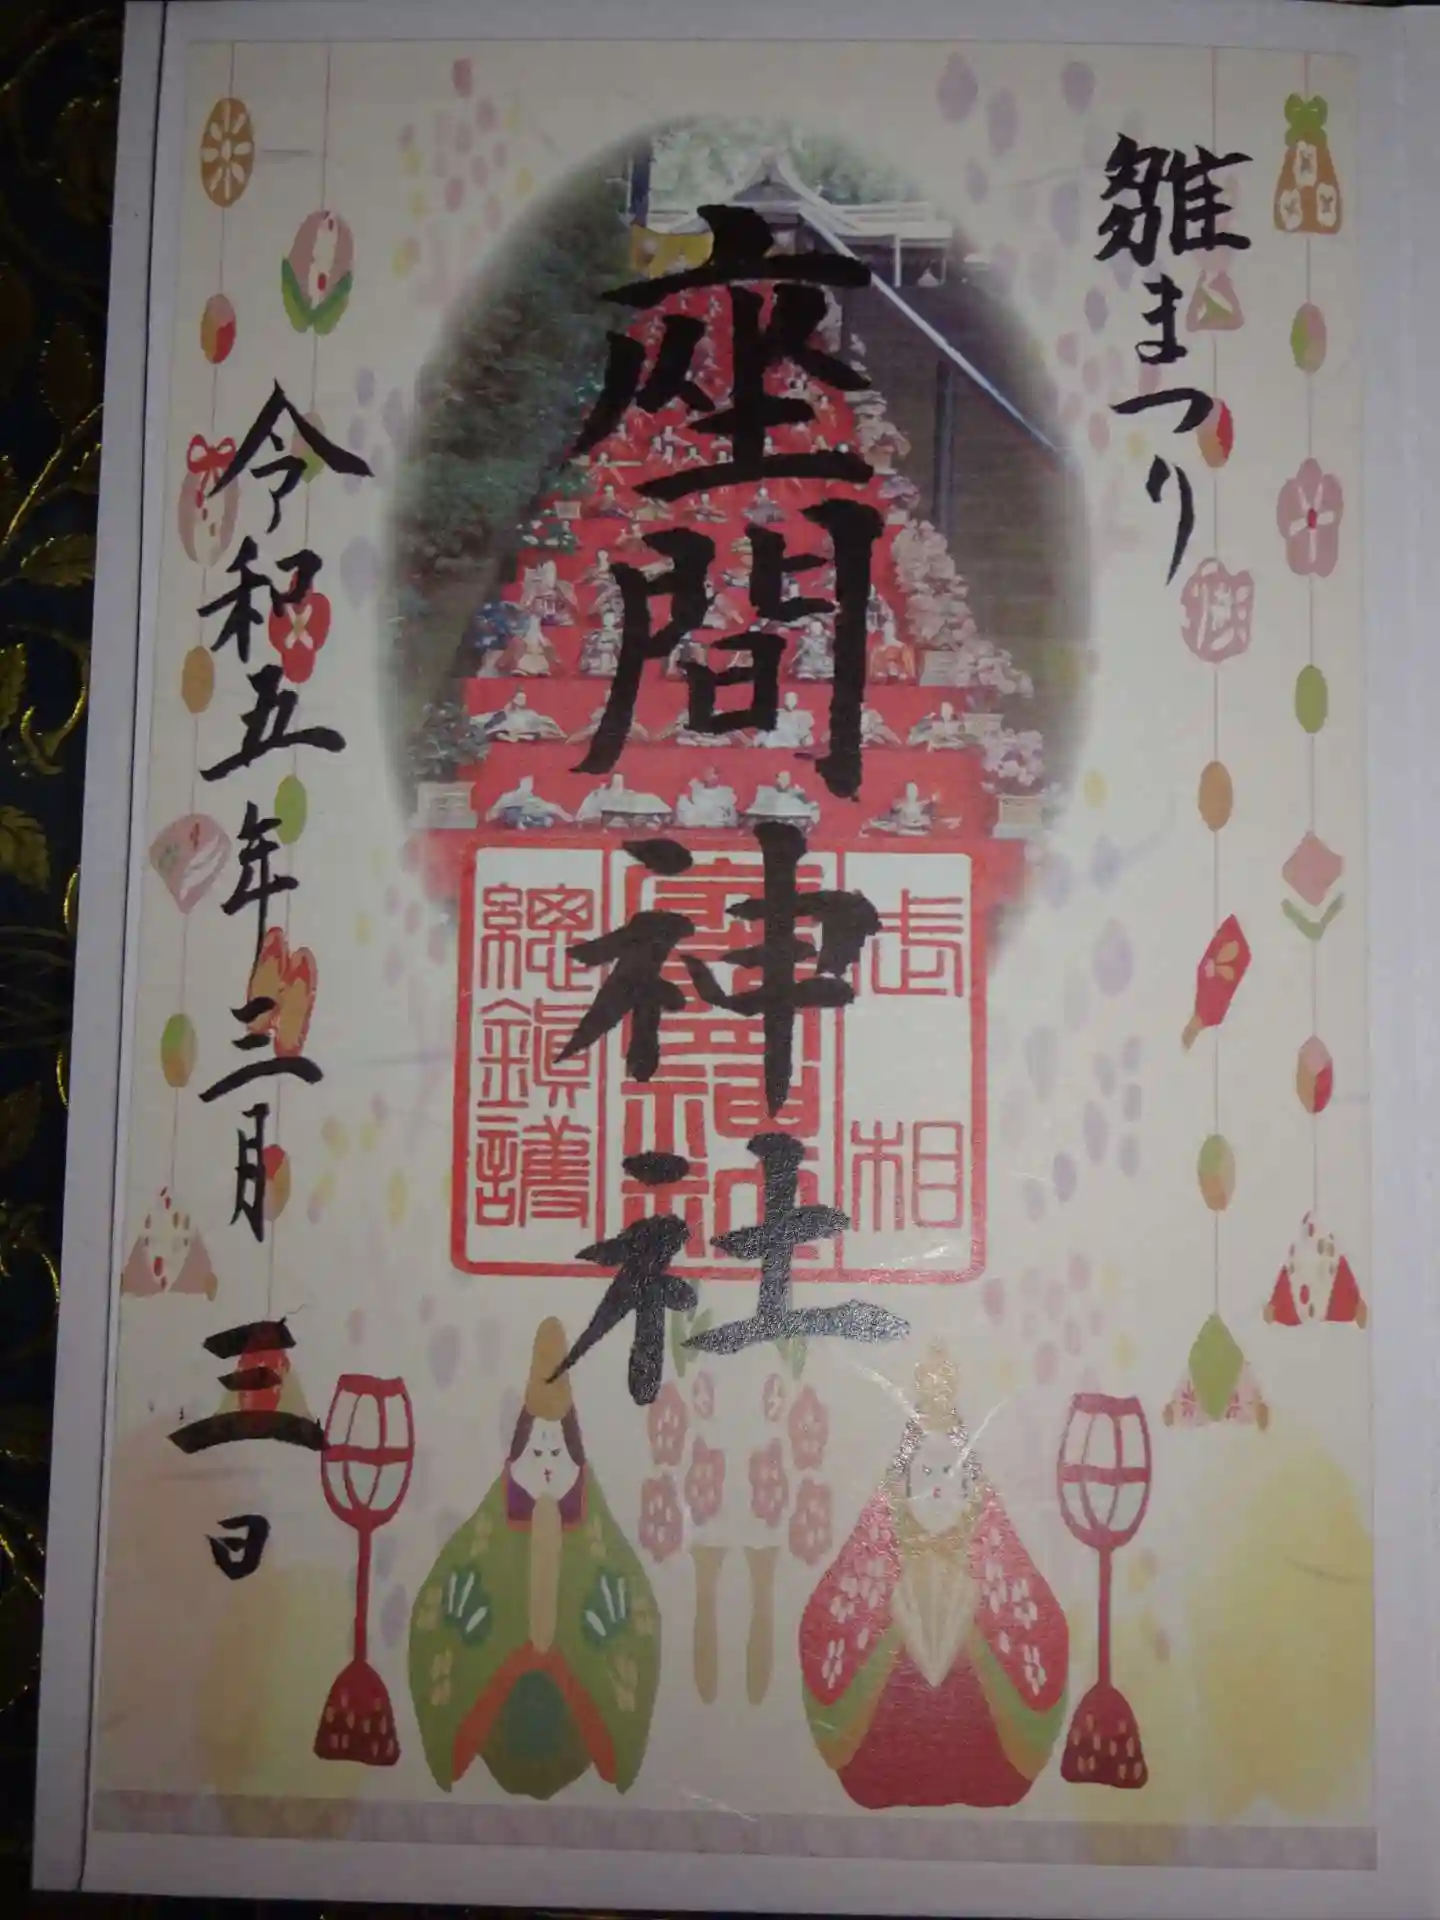 雛まつり
座間神社
武相
座間神社
総鎮護
令和五年三月三日